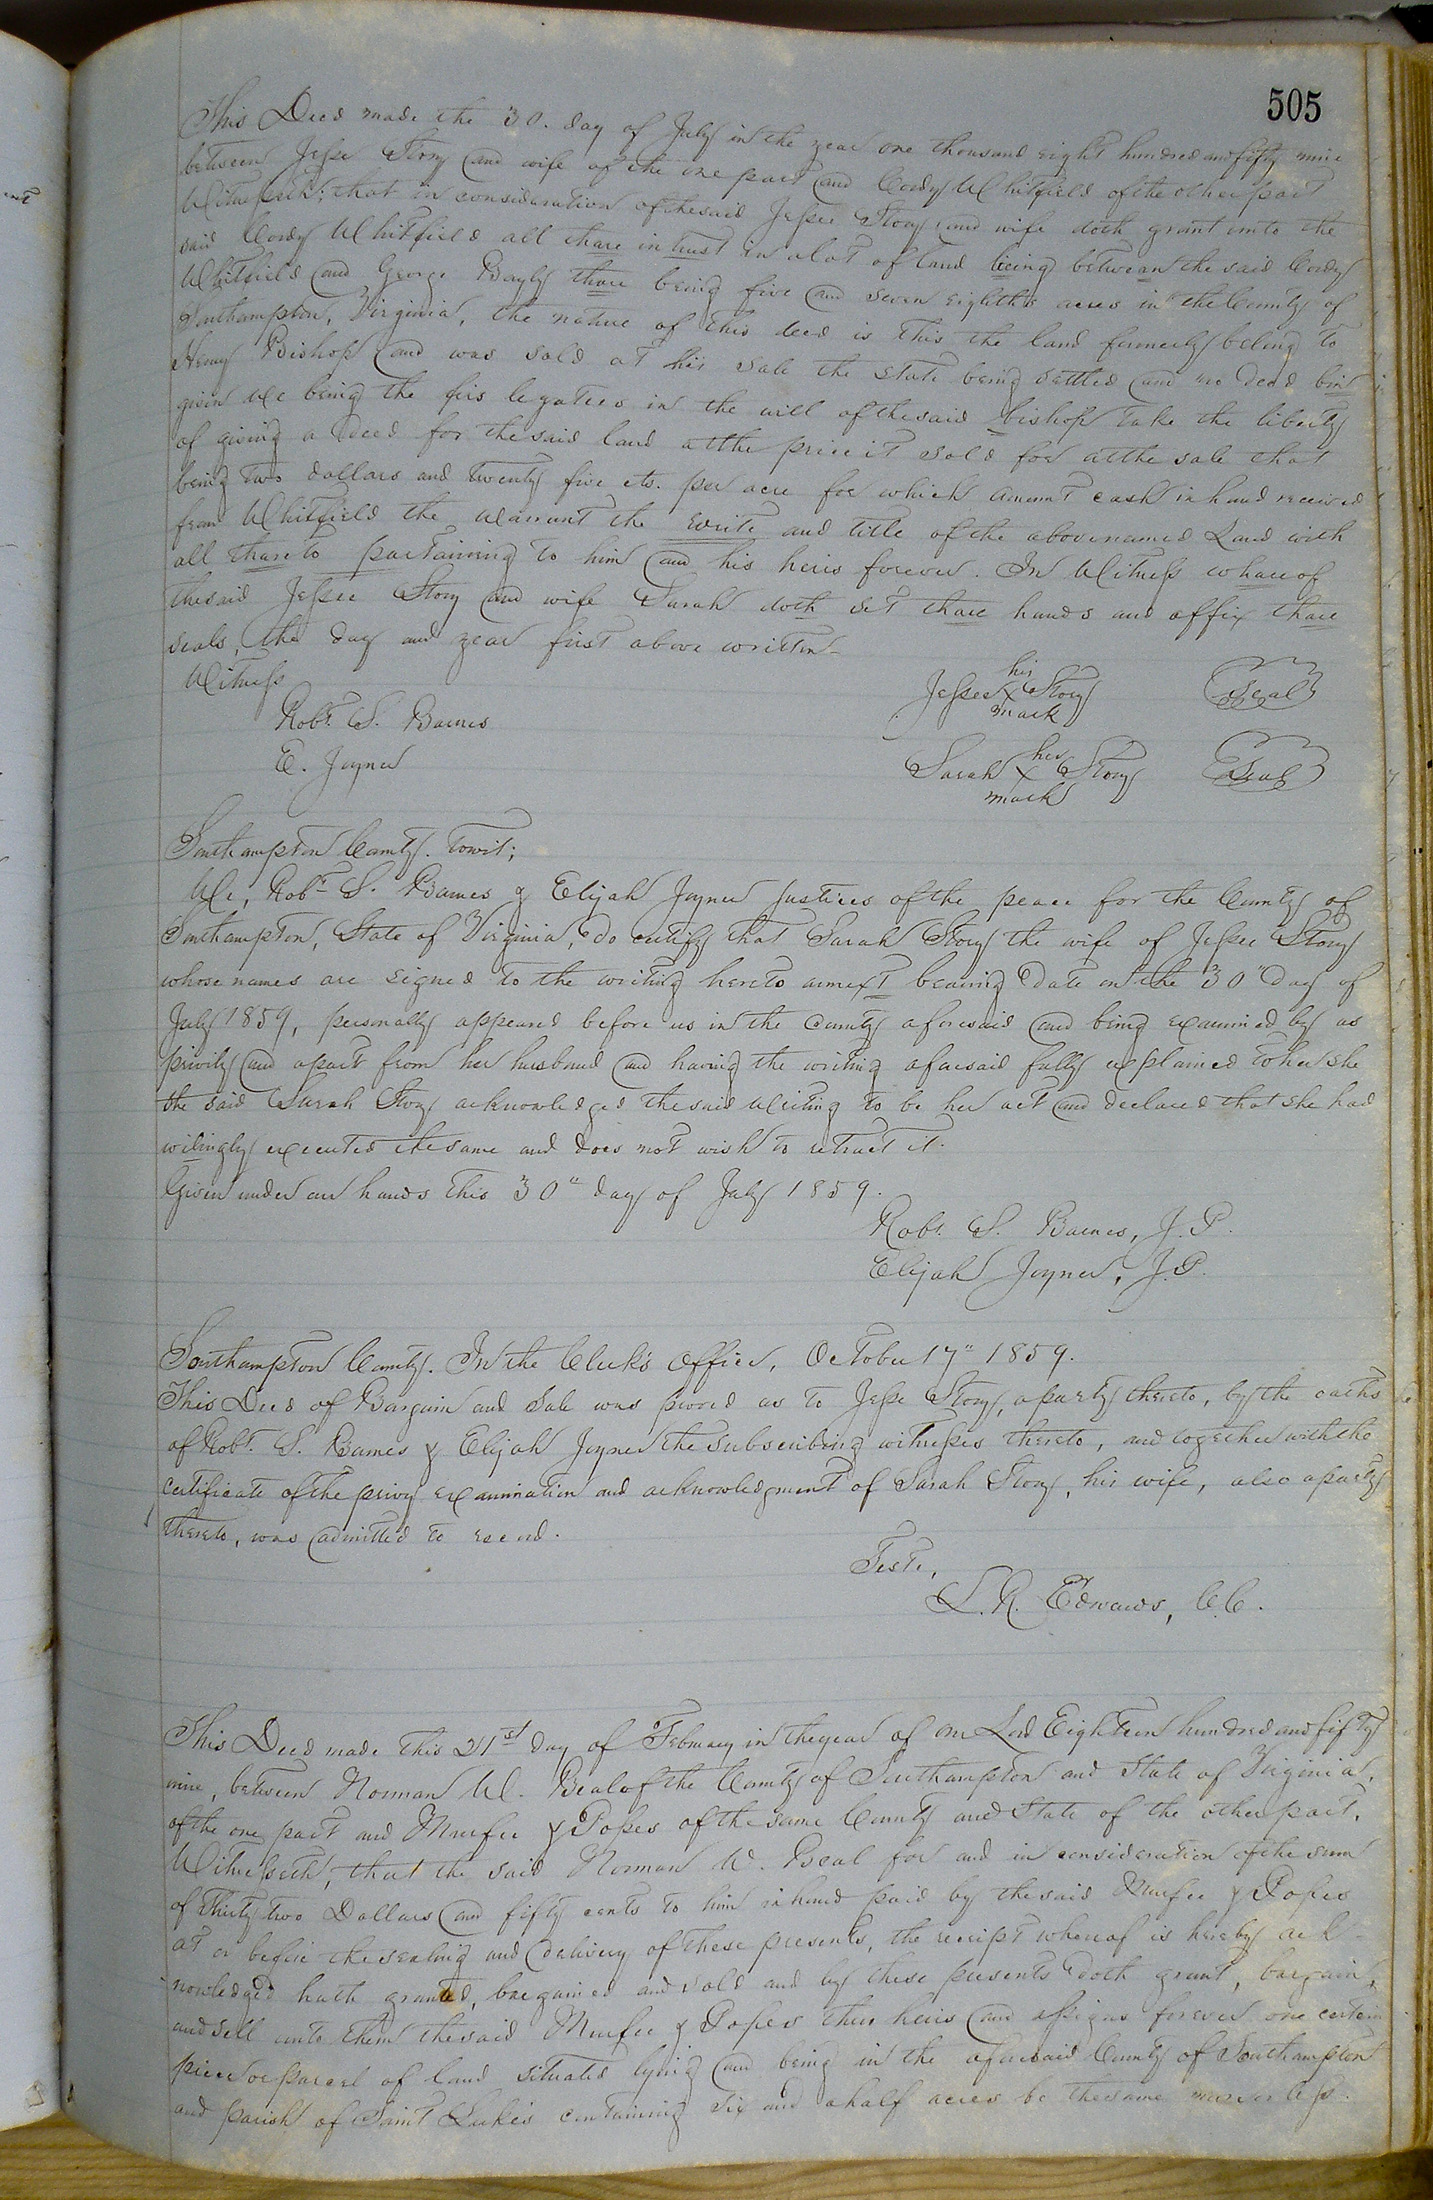 505
This Deed made the 30. day of July in the year one thousand eight hundred and fifty nine
between Jesse Story and wife of the one part and Cordy Whitfield of the other part
Witnesseth; that in consideration of the said Jessee Story and wife doth grant unto the
said Cordy Whitfield all thare intrust in a lot of land lieing betwean the said Cordy
Whitfield and George Bayly thare being five and seven eighths acres in the County of
Southampton, Virginia, the nature of this deed is this the land formerly belong to
Henry Bishop and was sold at his sale the state being settled and no deed bin
given We being the firs legatees in the will of the said bishop take the liberty
of giving a deed for the said land at the price it sold for at the sale that
being two dollars and twenty five cts. per acre for which amount cash in hand received
from Whitfield the warrant the write and title of the above named Land with
all thareto partaining to him and his heirs forever. In Witness whareof
the said Jessee Story and wife Sarah doth set thare hands and affix thare
seals, the day and year first above written
Witness
Robt. S. Barnes
E. Joyner
his
Jessee X Story Seal
mark
her
Sarah X Story Seal
mark
Southampton County. Towit;
We, Robt S. Barnes & Elijah Joyner Justices of the peace for the County of
Southampton, State of Virginia, do certify that Sarah Story the wife of Jessee Story
whose names are signed to the writing hereto annext bearing date on the 30" day of
July 1859, personally appeared before us in the County aforesaid and being examined by us
privily and apart from her husband and having the writing aforesaid fully explained to her she
the said Sarah Story acknowledged the said writing to be her act and declared that she had
wilingly executed the same and does not wish to retract it.
Given under our hands this 30" day of July 1859.
Robt. S. Barnes, J. P.
Elijah Joyner, J. P.
Southampton County. In the Clerk's Office, October 17" 1859.
This Deed of Bargain and Sale was proved as to Jesse Story, a party thereto, by the oaths
of Robt. S. Barnes & Elijah Joyner the subscribing witnesses thereto, and together with the
certificate of the privy examination and acknowledgment of Sarah Story, his wife, also a party
thereto, was admitted to record.
Teste,
L. R. Edwards, C.C.
This Deed made this 21st day of February in the year of our Lord Eighteen hundred and fifty
nine, between Norman W. Beal of the County of Southampton and State of Virginia,
of the one part and Murfee & Popes of the same County and State of the other part.
Witnesseth, that the said Norman W. Beal for and in consideration of the sum
of Thirty two Dollars and fifty cents to him in hand paid by the said Murfee & Popes
at or before the sealing and delivery of these presents, the receipt whereof is hereby ack-
nowledged hath granted, bargained and sold and by these presents doth grant, bargain,
and sell unto them the said Murfee & Popes their heirs and assigns forever one certain
piece or parcel of land situated lying and being in the aforesaid County of Southampton
and parish of Saint Luke's containing six and a half acres be the same more or less.